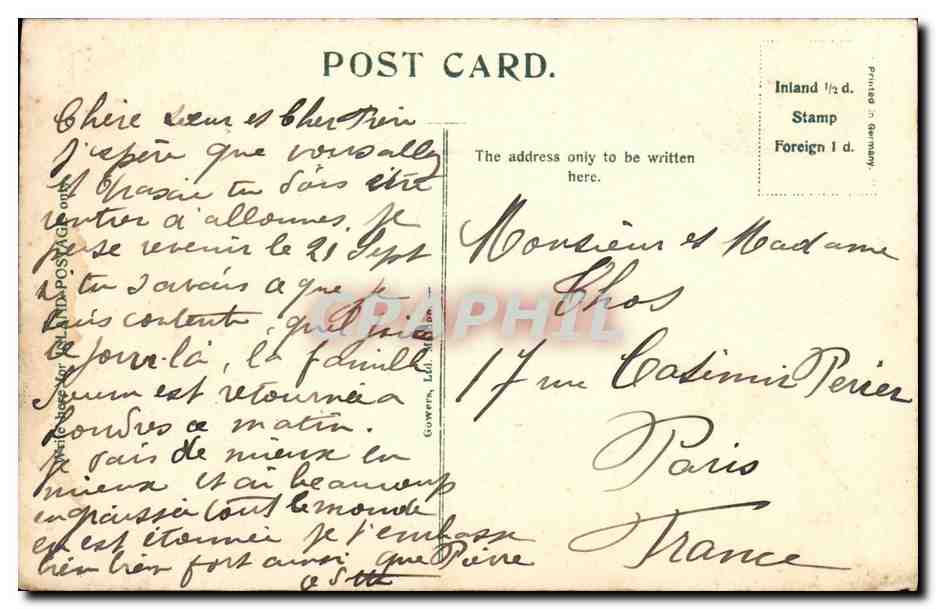 POST CARD.
Inland 1/2 d.
Stamp
Foreign 1 d.
Printed in Germany.
The address only to be written
here.
Write here for INLAND POSTAGE only
Gowers, Ltd.
Chère sœur et Cher
j'espère que vous allez
et tu dois être
rentrer d'allonnes, je
pense revenir le 21 Sept
si tu savais ce que je
suis contente, quel joie
ce jour-là, la famille
est retournée a
Londres ce matin.
je vais de mieux en
mieux et ai beaucoup
engraisser tout le monde
en est étonnée je t'embrasse
bien bien fort ainsi que Pierre
Monsieur et Madame
Chos
17 rue Casimir Perier
Paris
France
CPAPHIL